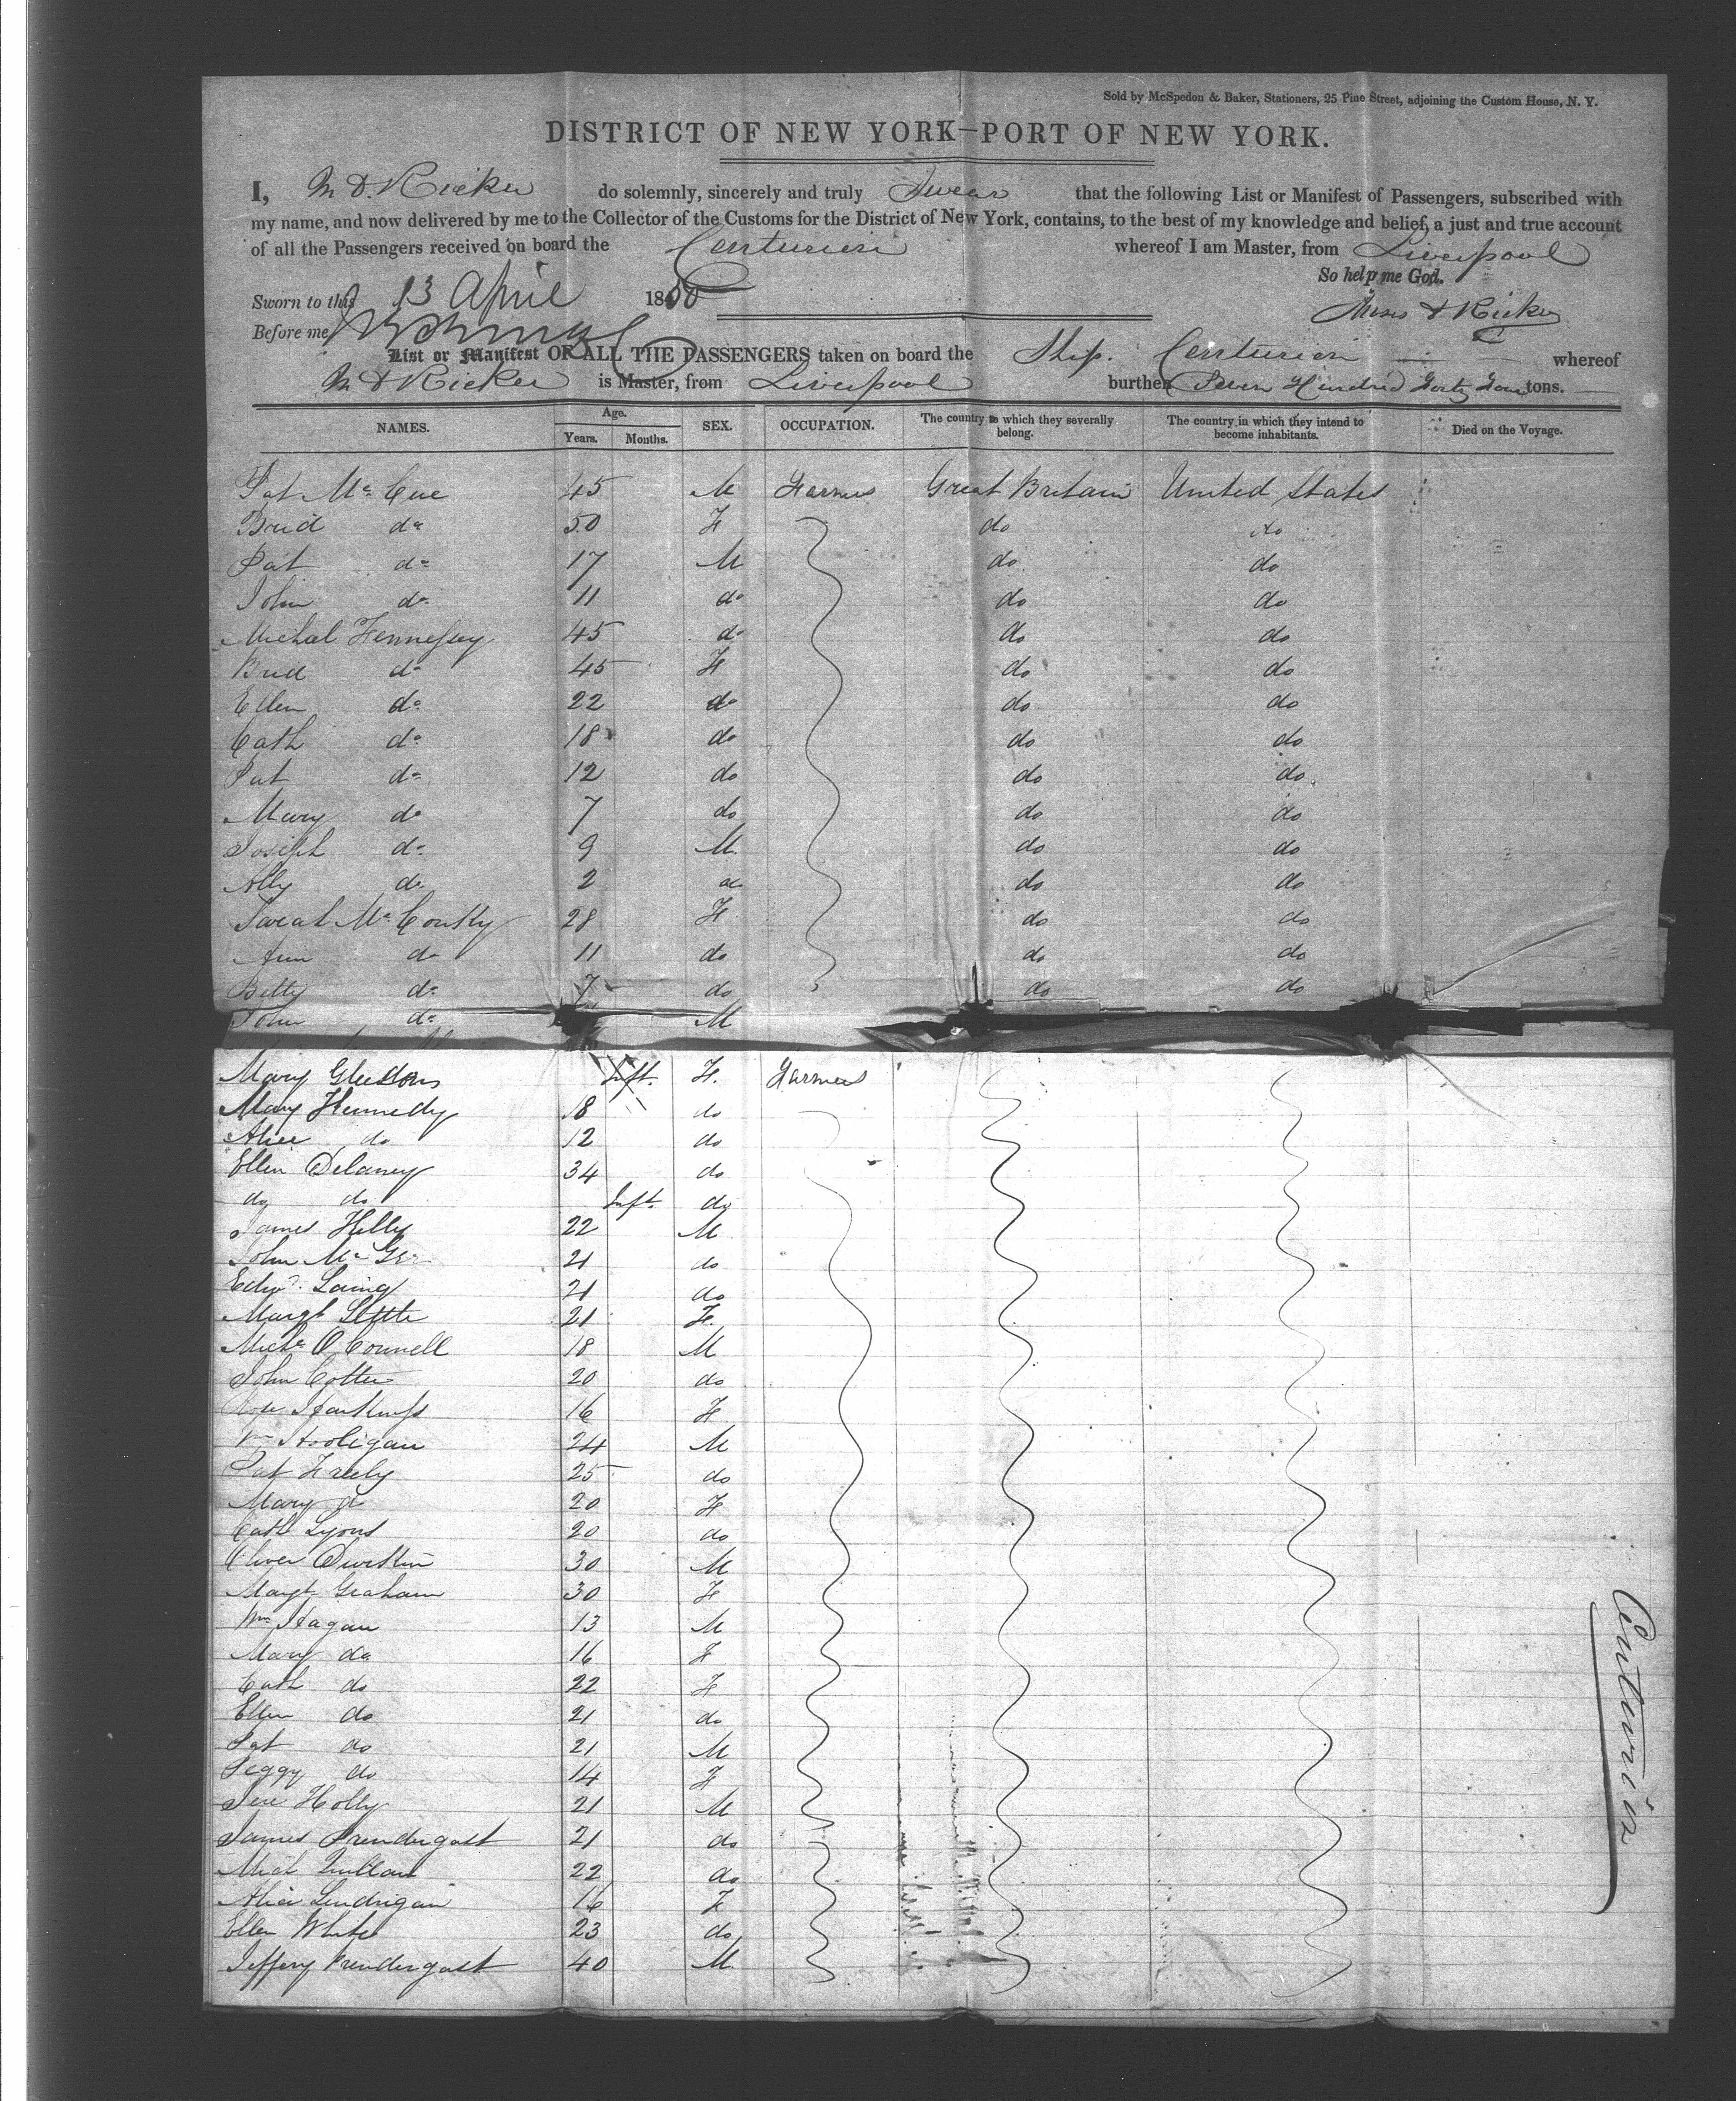 Sold by McSpedon & Baker, Stationers, 25 Pine Street, adjoining the Custom House, N. Y.
DISTRICT OF NEW YORK—PORT OF NEW YORK.
I, M D. Ricker do solemnly, sincerely and truly Swear that the following List or Manifest of Passengers, subscribed with
my name, and now delivered by me to the Collector of the Customs for the District of New York, contains, to the best of my knowledge and belief, a just and true account
of all the Passengers received on board the Centurion whereof I am Master, from Liverpool
So help me God.
Sworn to this 13 April 1850
Moses D Ricker
Before me
List or Manifest OF ALL THE PASSENGERS taken on board the Ship. Centurion whereof
M D Ricker is Master, from Liverpool burthen Seven Hundred Forty Four tons.
NAMES. Age. Years. Months. SEX. OCCUPATION. The country to which they severally belong. The country in which they intend to become inhabitants. Died on the Voyage.
Pat Mc Cue 45 M Farmers Great Britain United States
Brid do 50 F do do
Pat do 17 M do do
John do 11 do do do
Michael Hennessey 45 do do do
Brid do 45 F do do
Ellen do 22 do do do
Cath do 18 do do do
Pat do 12 do do do
Mary do 7 do do do
Joseph do 9 M. do do
Ally do 2 do do do
Sarah Mc 28 F do do
Ann do 11 do do do
Betty do 7 do do do
John do M
Mary Inft. F. Farmers
Mary Kennedy 18 do
Alice do 12 do
Ellen Delaney 34 do
do do Inft. do
James Kelly 22 M
John Mc 21 do
Edwd. Laing 21 do
Margt 21 F.
Michl O Connell 18 M
John Cotter 20 do
Rose 16 F
Wm Hooligan 24 M
Pat Freely 25 do
Mary do 20 F
Cath Lyons 20 do
Oliver Durkin 30 M
Margt Graham 30 F
Wm Hagan 13 M
Mary do 16 F
Cath do 22 F
Ellen do 21 do
Pat do 21 M
Peggy do 14 F
Jere Holly 21 M
James Prendergast 21 do
Mich Quillan 22 do
Alice Lundrigan 16 F
Ellen White 23 do
Jeffery Prendergast 40 M.
Centurion